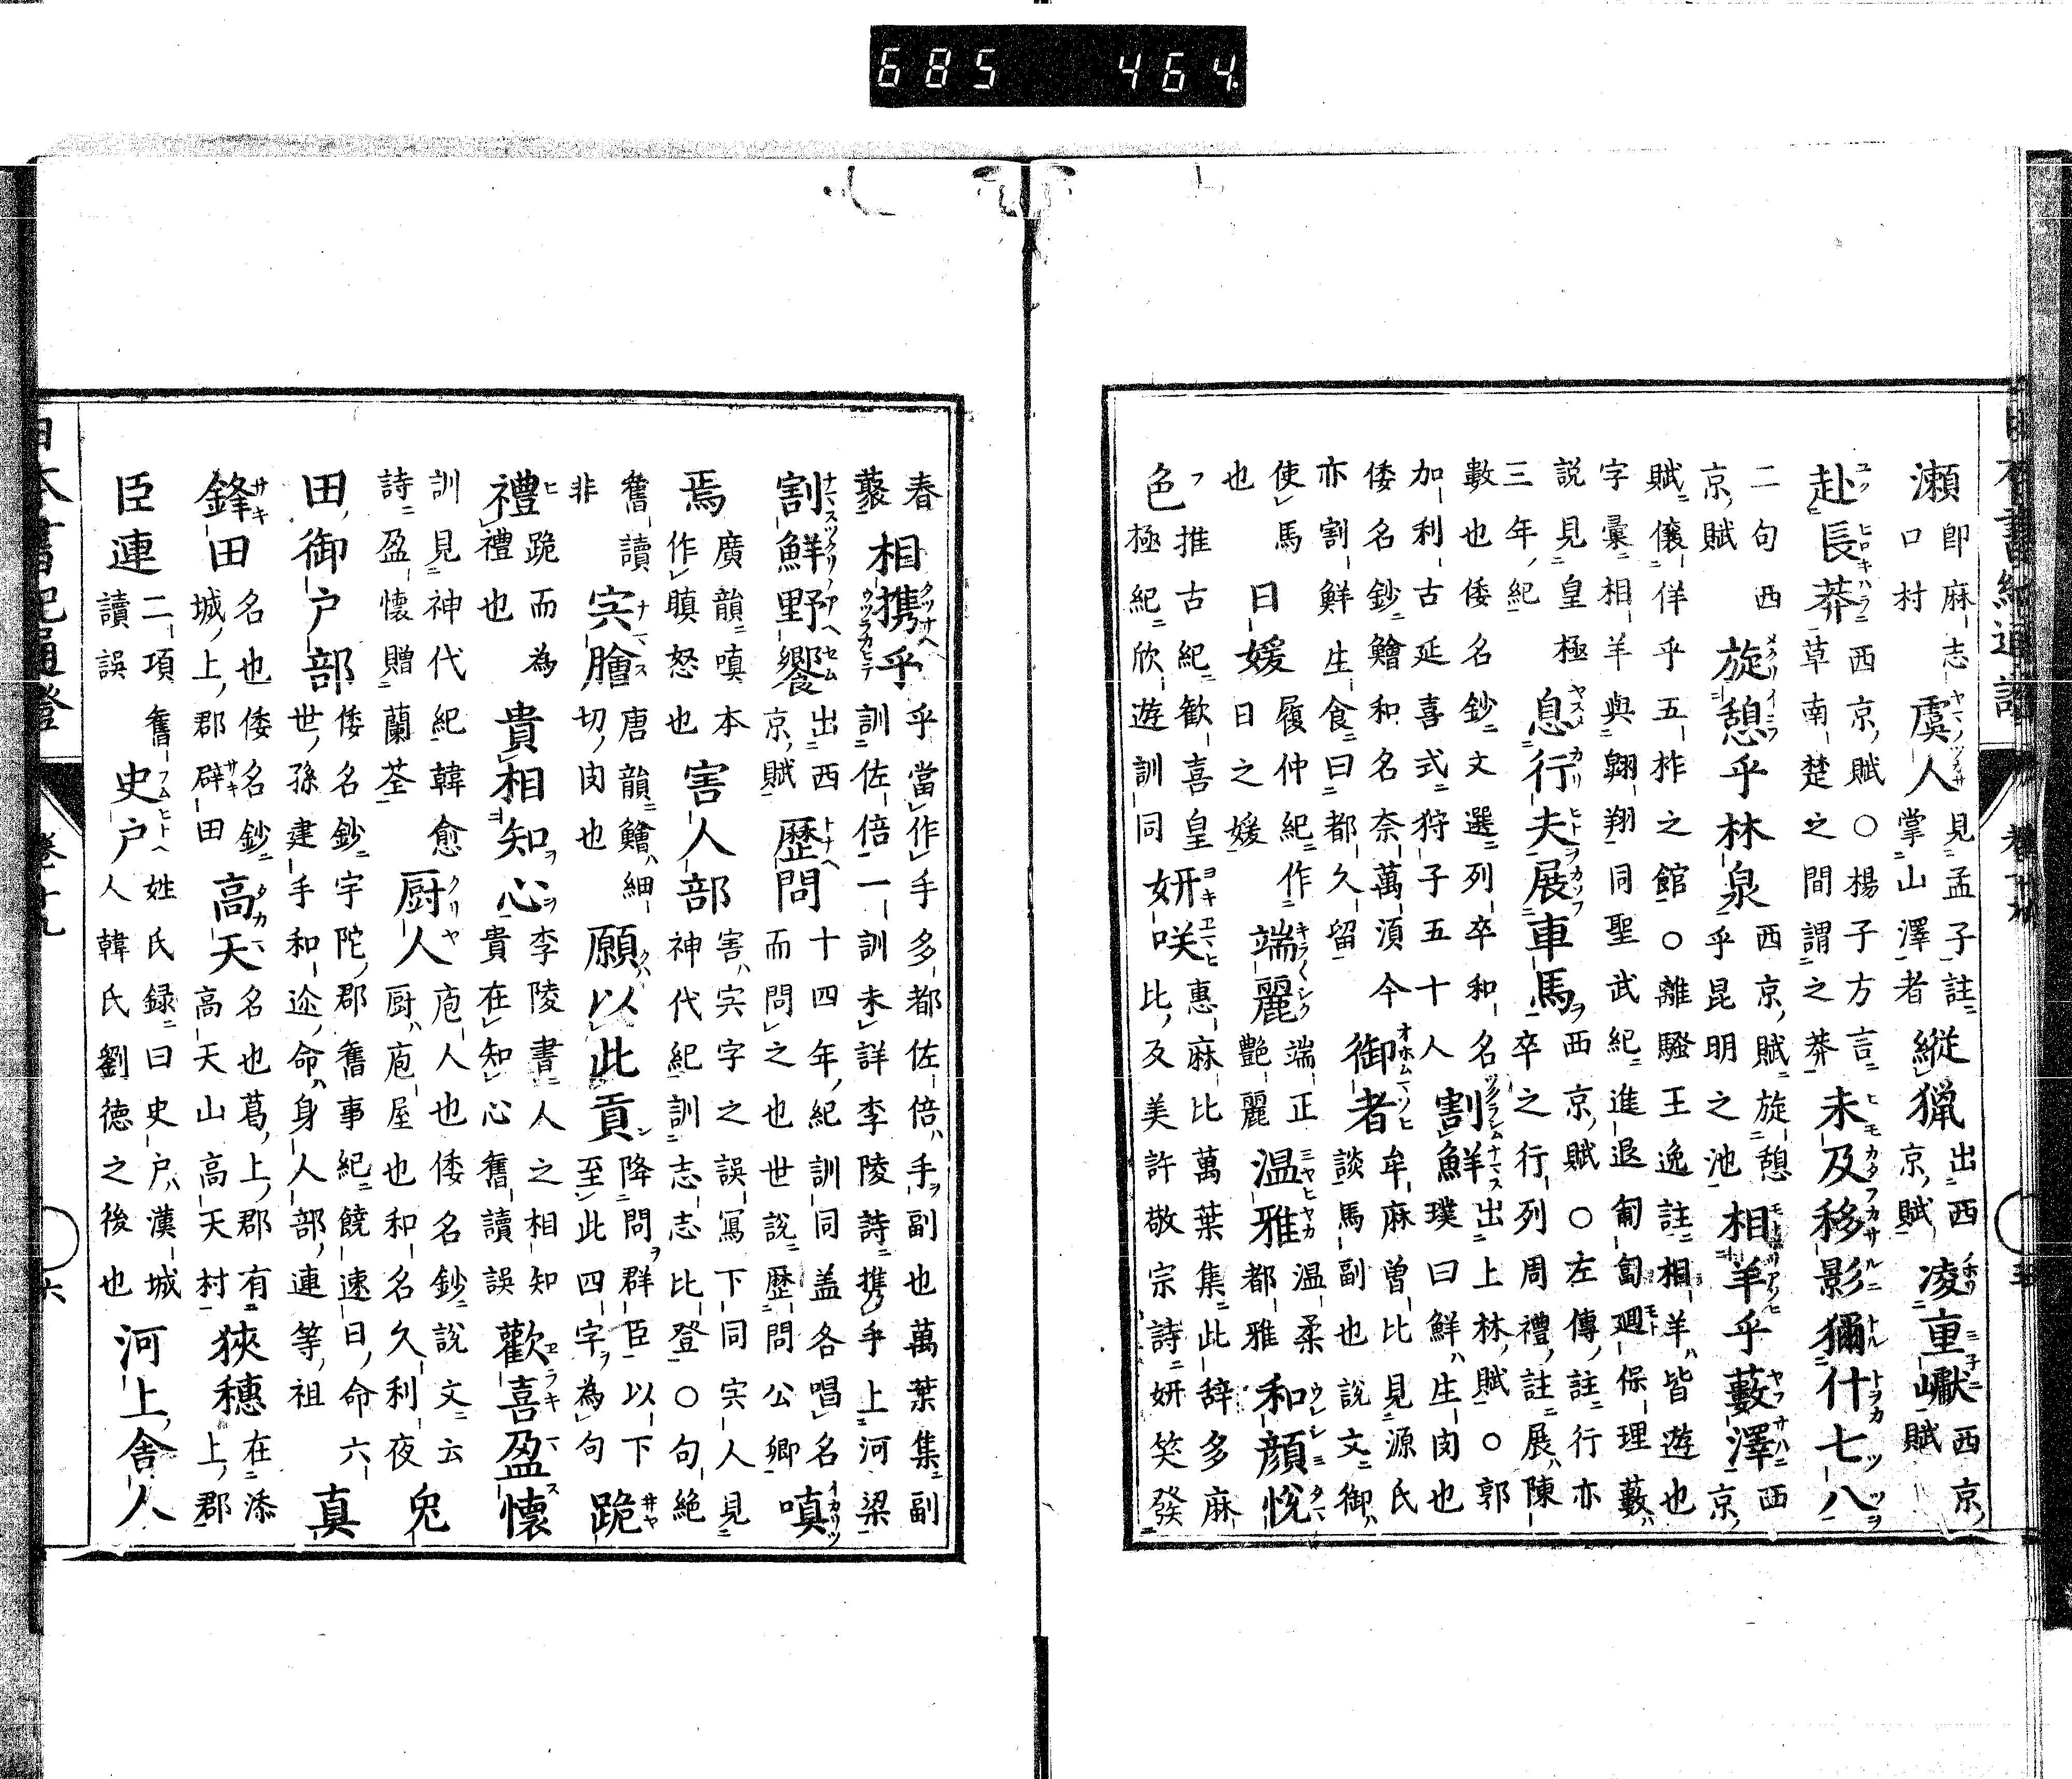 瀬 即麻志 口村 虞人 見孟子註 掌山澤者 縦獵 出西 京賦 凌重巘 西京 賦
赴長莽 西京賦○楊子方言 草南楚之間謂之莽 未及移影獮什七八
二句西 京賦 旋憩乎林泉 西京賦旋憩 乎昆明之池 相羊乎藪澤 西 京
賦儴佯乎五柞之館○離騒王逸註相羊皆遊也
字彙相羊與翱翔同聖武紀進退匍匐廻保理藪
説見皇極 三年紀 息行夫展車馬 西京賦○左傳註行亦 卒之行列周禮註展陳
數也倭名鈔文選列卒和名 加利古延喜式狩子五十人 割鮮 出上林賦○郭 璞曰鮮生肉也
倭名鈔鱠和名奈萬須今 亦割鮮生食曰都久留 御者 牟麻曽比見源氏 談馬副也説文御
使馬 也 曰媛 履仲紀作 日之媛 端麗 端正 艶麗 温雅 温柔 都雅 和顔悅
色 推古紀歡喜皇 極紀欣遊訓同 妍咲 惠麻比萬葉集此辞多麻 比及美許敬宗詩妍笑發
春 蘂 相携乎 乎當作手多都佐倍手副也萬葉集副 訓佐倍一訓未詳李陵詩携手上河梁
割鮮野饗 出西 京賦 歴問 十四年紀訓同盖各唱名 而問之也世説歴問公卿 嗔
焉 廣韻嗔本 作瞋怒也 害人部 害宍字之誤冩下同宍人見 神代紀訓志志比登○句絶
舊讀 非 宍膾 唐韻鱠細 切肉也 願以此貢 降問群臣以下 至此四字為句 跪
禮 跪而為 禮也 貴相知心 李陵書人之相知 貴在知心舊讀誤 歡喜盈懷
訓見神代紀韓愈 詩盈懷贈蘭荃 厨人 庖人也倭名鈔説文云 厨庖屋也和名久利夜 兔
田御戸部 倭名鈔宇陀郡舊事紀饒速日命六 世孫建手和迩命身人部連等祖 真
鋒田 名也倭名鈔 城上郡辟田 高天 名也葛上郡有 高天山高天村 狹穗 在添 上郡
臣連 二項 讀誤 史戸 舊フムヒトヘ姓氏録曰史戸漢城 人韓氏劉徳之後也 河上舎人
日本書紀通證 卷十九 六
685 464